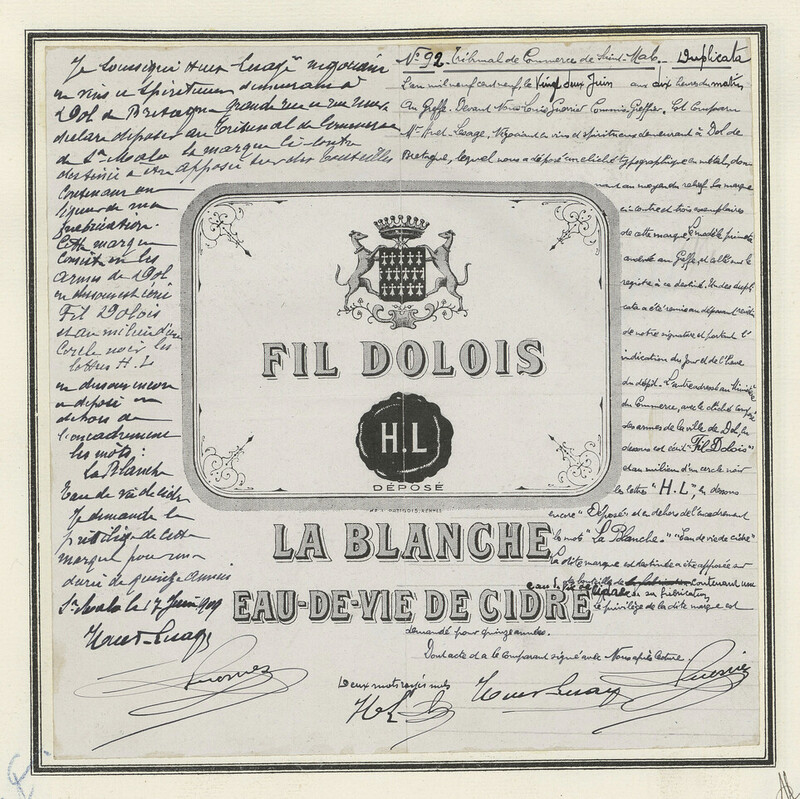 Je soussigné Huet-Lesage négociant
en vins & Spiritueux demeurant à
Dol de Bretagne grande rue
déclare déposer au Tribunal de Commerce
de St Malo la marque ci-contre
destinée à être apposée sur des bouteilles
contenant une
liqueur de ma
fabrication.
Cette marque
consiste en les
armes de Dol
en dessous est écrit
Fil Dolois
et au milieu d'un
cercle noir les
lettres H.L
en dessous encore
déposé en
dehors de
l'encadrement
les mots :
La Blanche
Eau de vie de cidre
Je demande le
privilège de cette
marque pour une
durée de quinze années
St Malo le 17 Juin 1909
Huet-Lesage
No 92. Tribunal de Commerce de Saint-Malo. Duplicata
L'an mil neuf cent neuf, le Vingt deux Juin aux dix heures du matin
Au Greffe. Devant Nous Louis Commis Greffier. Est Comparu
Mr Huet-Lesage, Négociant en vins et spiritueux demeurant à Dol de
Bretagne, lequel nous a déposé un cliché typographique en métal, don
nant au moyen du relief la marque
ci-contre et trois exemplaires
de cette marque, le modèle
au Greffe, et collé sur le
registre à ce destiné. Un des dupli
cata a été remis au déposant revêtu
de notre signature et portant l'
indication du Jour et de l'heure
du dépôt. L'autre adressé au Ministère
du Commerce, avec le cliché
des armes de la ville de Dol, en
dessous est écrit "Fil Dolois"
et au milieu d'un cercle noir
les lettres "H.L", en dessous
encore "Déposé" et en dehors de l'encadrement
les mots "La Blanche" "Eau de vie de cidre"
La dite marque est destinée à être apposée sur
contenant une
eau de vie de cidre de sa fabrication
le privilège de la dite marque est
demandé pour quinze années.
Dont acte et a le Comparant signé avec Nous après lecture.
Deux mots rayés nuls
H L
Huet-Lesage
FIL DOLOIS
H.L
DÉPOSÉ
LA BLANCHE
EAU-DE-VIE DE CIDRE